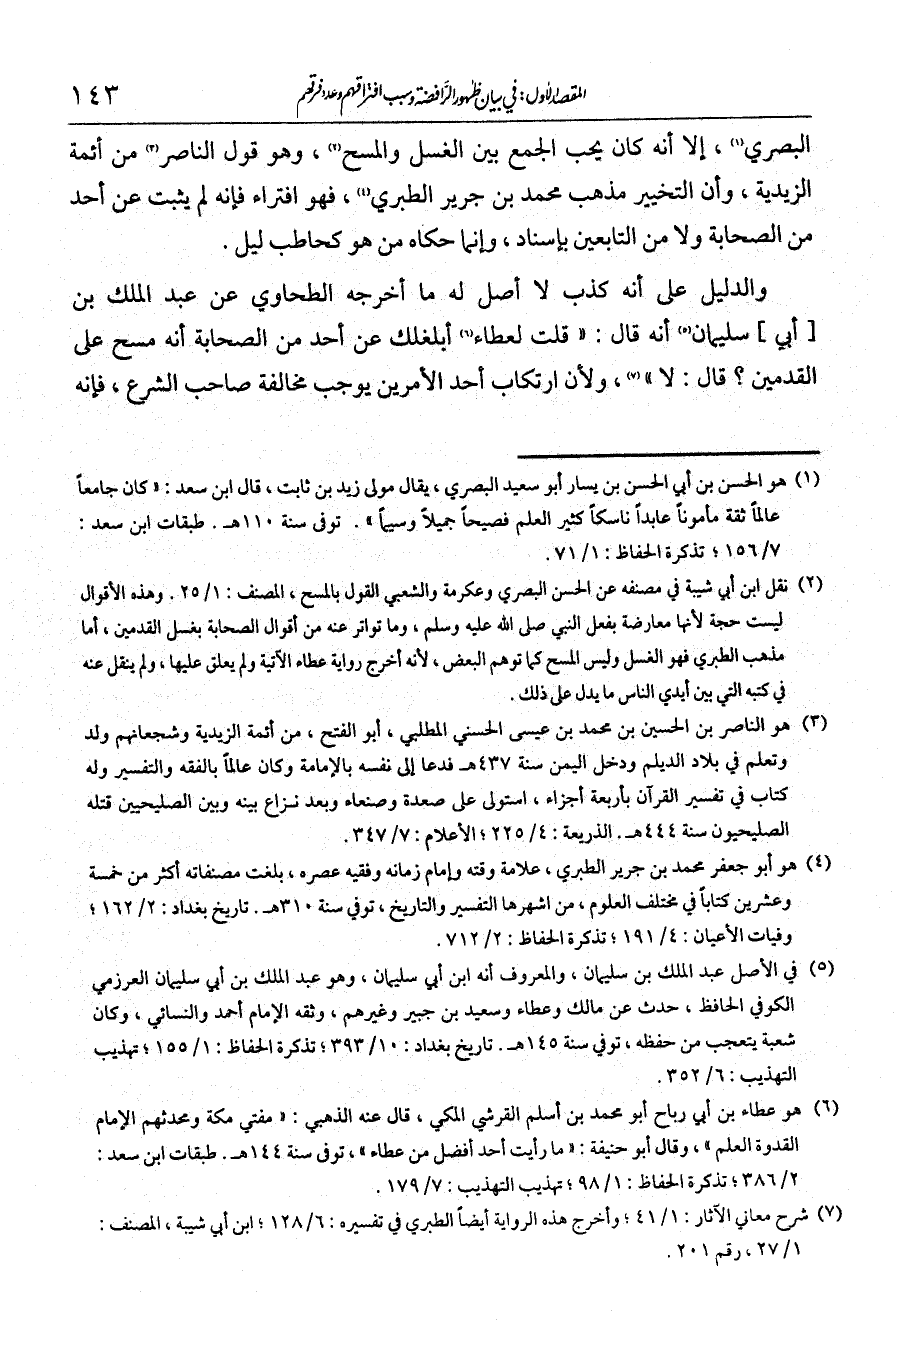 المقصد الأول: في بيان ظهور الرافضة وسبب افتراقهم وعدد فرقهم ١٤٣
البصري(١) ، إلا أنه كان يحب الجمع بين الغسل والمسح(٢) ، وهو قول الناصر(٣) من أئمة
الزيدية ، وأن التخيير مذهب محمد بن جرير الطبري(٤) ، فهو افتراء فإنه لم يثبت عن أحد
من الصحابة ولا من التابعين بإسناد ، وإنما حكاه من هو كحاطب ليل .
والدليل على أنه كذب لا أصل له ما أخرجه الطحاوي عن عبد الملك بن
[ أبي ] سليمان(٥) أنه قال : « قلت لعطاء(٦) أبلغلك عن أحد من الصحابة أنه مسح على
القدمين ؟ قال : لا »(٧) ، ولأن ارتكاب أحد الأمرين يوجب مخالفة صاحب الشرع ، فإنه
(١) هو الحسن بن أبي الحسن بن يسار أبو سعيد البصري ، يقال مولى زيد بن ثابت ، قال ابن سعد : « كان جامعاً
عالماً ثقة مأموناً عابداً ناسكاً كثير العلم فصيحاً جميلاً وسيماً » . توفى سنة ١١٠هـ . طبقات ابن سعد :
٧/ ١٥٦ ؛ تذكرة الحفاظ : ١/ ٧١ .
(٢) نقل ابن أبي شيبة في مصنفه عن الحسن البصري وعكرمة والشعبي القول بالمسح ، المصنف : ١/ ٢٥ . وهذه الأقوال
ليست حجة لأنها معارضة بفعل النبي صلى الله عليه وسلم ، وما تواتر عنه من أقوال الصحابة بغسل القدمين ، أما
مذهب الطبري فهو الغسل وليس المسح كما توهم البعض ، لأنه أخرج رواية عطاء الآتية ولم يعلق عليها ، ولم ينقل عنه
في كتبه التي بين أيدي الناس ما يدل على ذلك .
(٣) هو الناصر بن الحسين بن محمد بن عيسى الحسني المطلبي ، أبو الفتح ، من أئمة الزيدية وشجعانهم ولد
وتعلم في بلاد الديلم ودخل اليمن سنة ٤٣٧هـ فدعا إلى نفسه بالإمامة وكان عالماً بالفقه والتفسير وله
كتاب في تفسير القرآن بأربعة أجزاء ، استولى على صعدة وصنعاء وبعد نزاع بينه وبين الصليحيين قتله
الصليحيون سنة ٤٤٤هـ . الذريعة : ٤/ ٢٢٥ ؛ الأعلام : ٧/ ٣٤٧ .
(٤) هو أبو جعفر محمد بن جرير الطبري ، علامة وقته وإمام زمانه وفقيه عصره ، بلغت مصنفاته أكثر من خمسة
وعشرين كتاباً في مختلف العلوم ، من اشهرها التفسير والتاريخ ، توفي سنة ٣١٠هـ . تاريخ بغداد : ٢/ ١٦٢ ؛
وفيات الأعيان : ٤/ ١٩١ ؛ تذكرة الحفاظ : ٢/ ٧١٢ .
(٥) في الأصل عبد الملك بن سليمان ، والمعروف أنه ابن أبي سليمان ، وهو عبد الملك بن أبي سليمان العرزمي
الكوفي الحافظ ، حدث عن مالك وعطاء وسعيد بن جبير وغيرهم ، وثقه الإمام أحمد والنسائي ، وكان
شعبة يتعجب من حفظه ، توفي سنة ١٤٥هـ . تاريخ بغداد : ١٠/ ٣٩٣ ؛ تذكرة الحفاظ : ١/ ١٥٥ ؛ تهذيب
التهذيب : ٦/ ٣٥٢ .
(٦) هو عطاء بن أبي رباح أبو محمد بن أسلم القرشي المكي ، قال عنه الذهبي : « مفتي مكة ومحدثهم الإمام
القدوة العلم » ، وقال أبو حنيفة : « ما رأيت أحد أفضل من عطاء » ، توفى سنة ١٤٤هـ . طبقات ابن سعد :
٢/ ٣٨٦ ؛ تذكرة الحفاظ : ١/ ٩٨ ؛ تهذيب التهذيب : ٧/ ١٧٩ .
(٧) شرح معاني الآثار : ١/ ٤١ ؛ وأخرج هذه الرواية أيضاً الطبري في تفسيره : ٦/ ١٢٨ ؛ ابن أبي شيبة ، المصنف :
١/ ٢٧ ، رقم ٢٠١ .